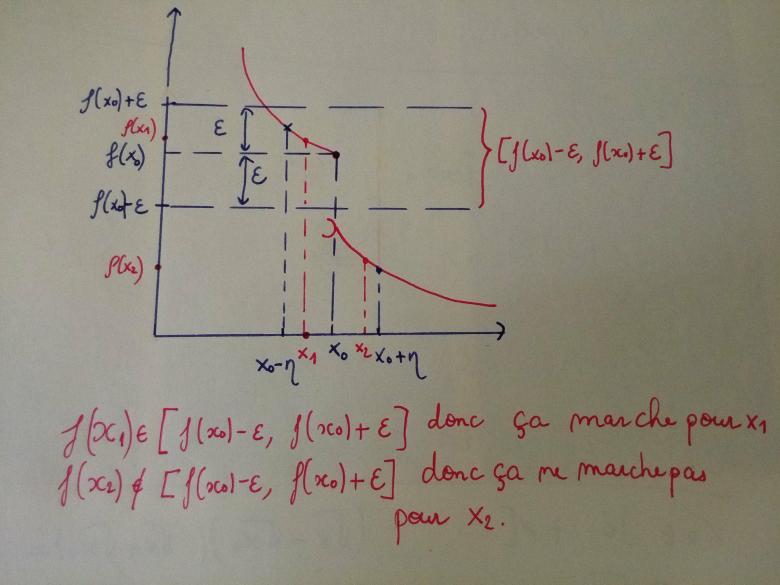 f(x₀)+ε
f(x₁)
ε
f(x₀)
[f(x₀)-ε, f(x₀)+ε]
ε
f(x₀)-ε
f(x₂)
x₀-η x₁ x₀ x₂ x₀+η
f(x₁) ∈ [f(x₀)-ε, f(x₀)+ε] donc ça marche pour x₁
f(x₂) ∉ [f(x₀)-ε, f(x₀)+ε] donc ça ne marche pas
pour x₂.